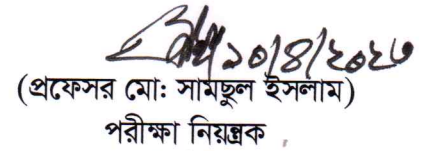 ১০/৪/২০২৩
(প্রফেসর মো: সামছুল ইসলাম)
পরীক্ষা নিয়ন্ত্রক